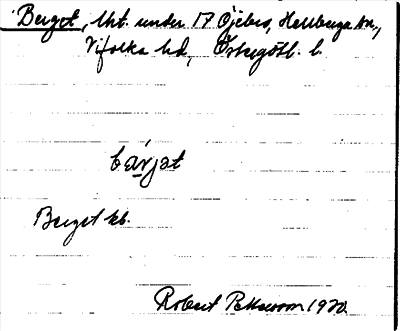 Berget, lht. under 17 Öjebro, Hellberga sn,
Vifolka hd, Östergötl. l.
bärjət
Berget kb.
Robert Pettersson 1920